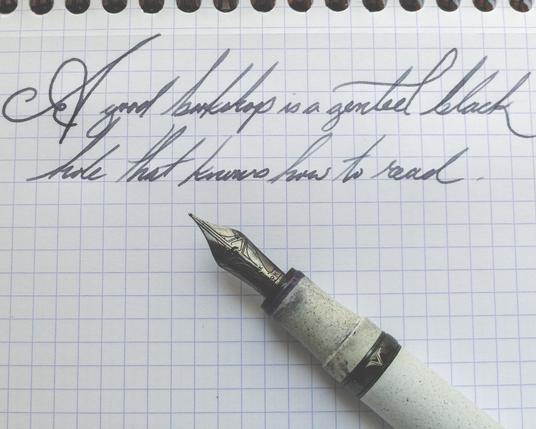 A good bookshop is a genteel black
hole that knows how to read.